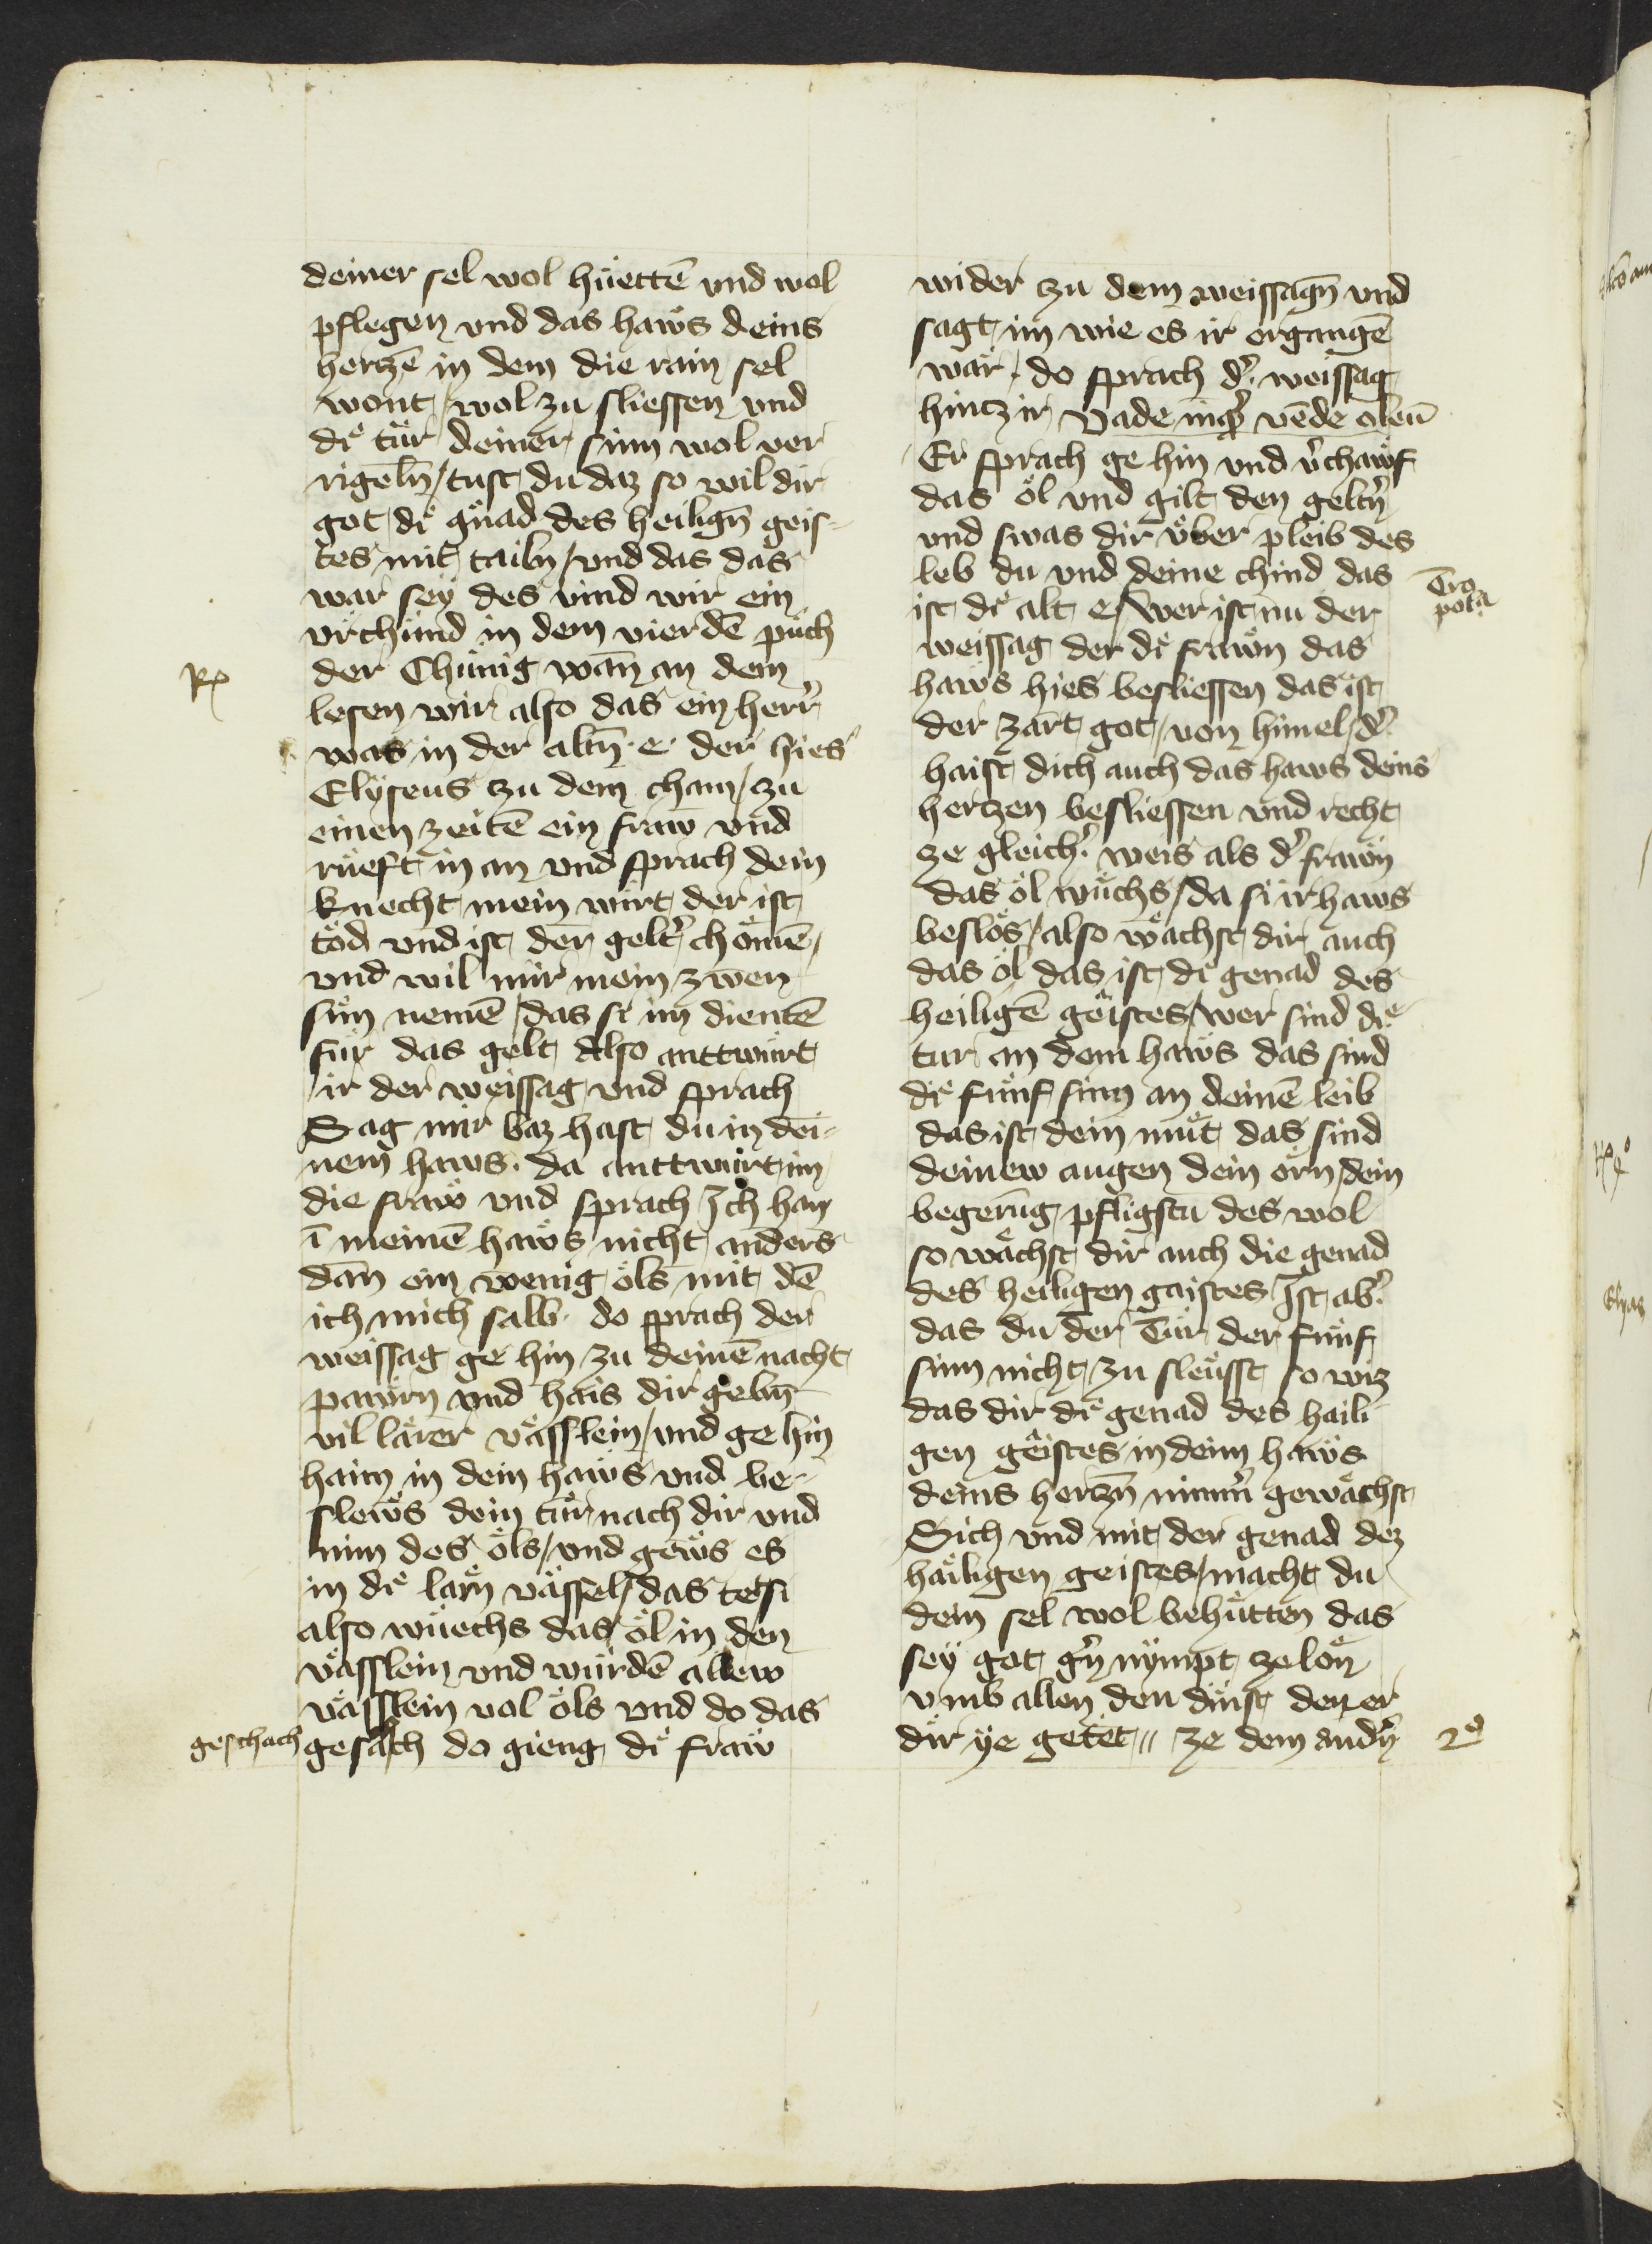 deiner sel wol hüettē vnd wol
pflegen vnd das haws deins
hertzē in dem die rain sel
wont / wol zu sliessen vnd
dͤi tür deiner sinn wol ver
rigelñ / tust du daz so wil dir
got dͤi gnad des heiligñ geis-
tes mit tailn / vnd das das
war seÿ des vind wir ein
vrchund in dem vierdē puch
der Chünig wañ an dem
lesen wir also das ein herr
was in der altñ · e · der hies
Elÿseus zu dem cham / zu
einen zeitē ein fraw vnd
rüeft in an vnd sprach dein
knecht mein wirt der ist
tod vnd ist der gelt͛ chömē /
vnd wil mir mein zwen
sün nemē / das si im dientē
für das gelt Also anttwurt
ir der weissag vnd sprach
Sag mir waz hast du in dei-
nem haws · da anttwurt im
die fraw vnd sprach Ich han
ī meinē haws nicht anders
dañ ein wenig öls mit dē
ich mich salb · do sprach der
weissag ge hin zu deinē nacht
pawrn vnd hais dir gebñ
vil lärer vässlein / vnd ge hin
haim in dein haws vnd be-
slews dein tür nach dir vnd
nim des öls / vnd gews es
in dͤi lärn vässel / das tet si
also wüechs das öl in den
vässlein vnd würdē allew
vässlein vol öls vnd do das
geschach gesach do gieng dͤi fraw
Rͫ
wider zu dem weissagñ vnd
sagt im wie es ir ergangē
wär · do sprach d͛ weissag
hintz ir Vade inq͛ vēde oleū
Er sprach ge hin vnd v͛chawf
das öl vnd gilt den geltn͛
vnd swas dir über pleib des
leb du vnd deine chind das
ist dͤi alt e / Wer ist nu der
weissag der dͤi frawn das
haws hies besliessen das ist
der zart got / von himel / d͛
haist dich auch das haws deins
hertzen besliessen vnd recht
ze gleich͛ weis als d͛ frawn
das öl wuchs / da si ir haws
beslos / also wächst dir auch
das öl das ist dͤi genad des
heiligē geistes / wer sind dͤi
tur an dem haws das sind
dͤi fünf sinn an deinē leib
das ist dein müt das sind
deinew augen dein orn / dein
begerūg pfligstu des wol
so wächst dir auch die genad
des heiligen gaistes Ist ab͛
das du der Tür der fünf
sinn nicht zu sleusst so wiz
das dir dͤi genad des haili
gen geistes in deim haws
deins hertzñ nimm͛ gewächst
Sich vnd mit der genad dez
häiligen geistes / macht du
dein sel wol behütten das
seÿ got g͛n nÿmpt ze lon
vmb allen den dinst den er
dir ÿe getet // ze dem andn͛
Tro
pola
2ᵒ